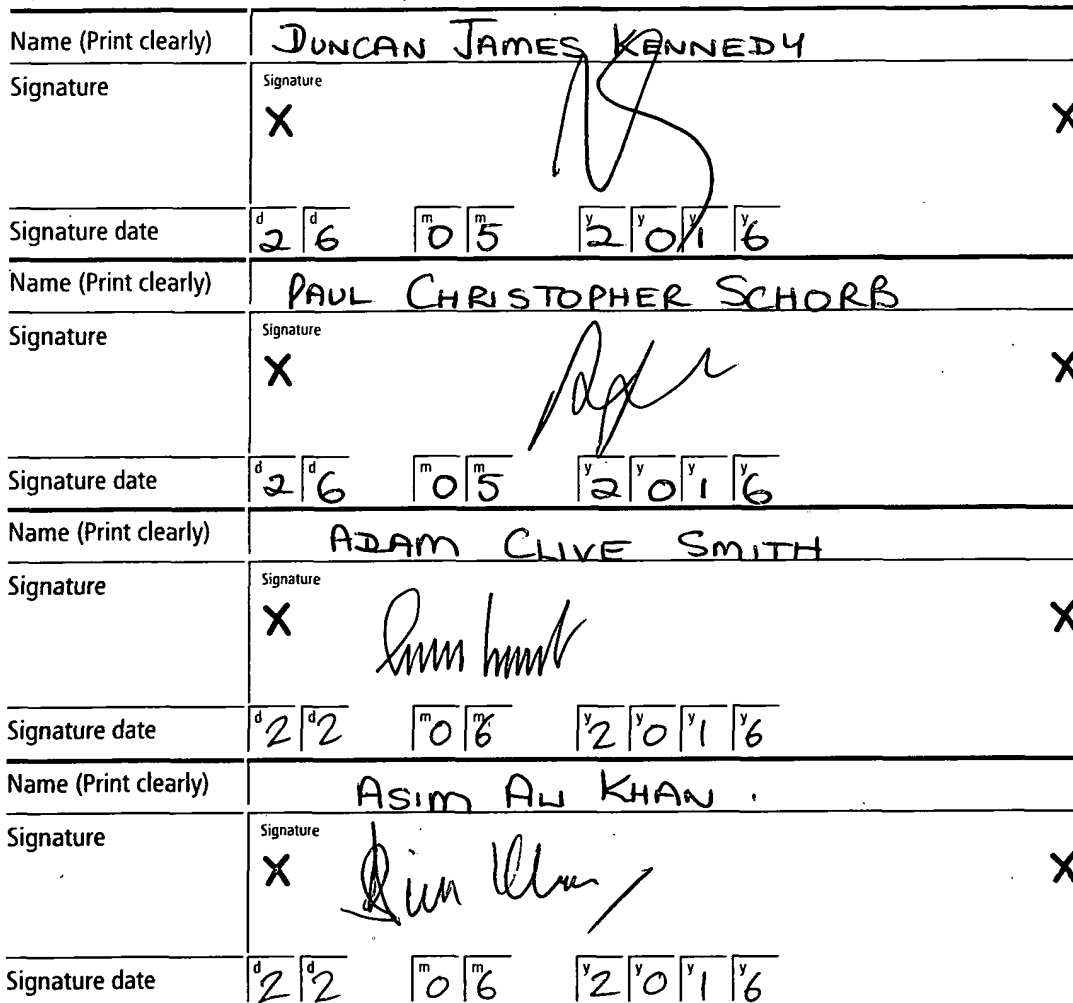 Name (Print clearly) DUNCAN JAMES KENNEDY
Signature Signature
X X
Signature date d2 d6 m0 m5 y2 y0 y1 y6
Name (Print clearly) PAUL CHRISTOPHER SCHORB
Signature Signature
X X
Signature date d2 d6 m0 m5 y2 y0 y1 y6
Name (Print clearly) ADAM CLIVE SMITH
Signature Signature
X X
Signature date d2 d2 m0 m6 y2 y0 y1 y6
Name (Print clearly) ASIM ALI KHAN .
Signature Signature
X X
Signature date d2 d2 m0 m6 y2 y0 y1 y6